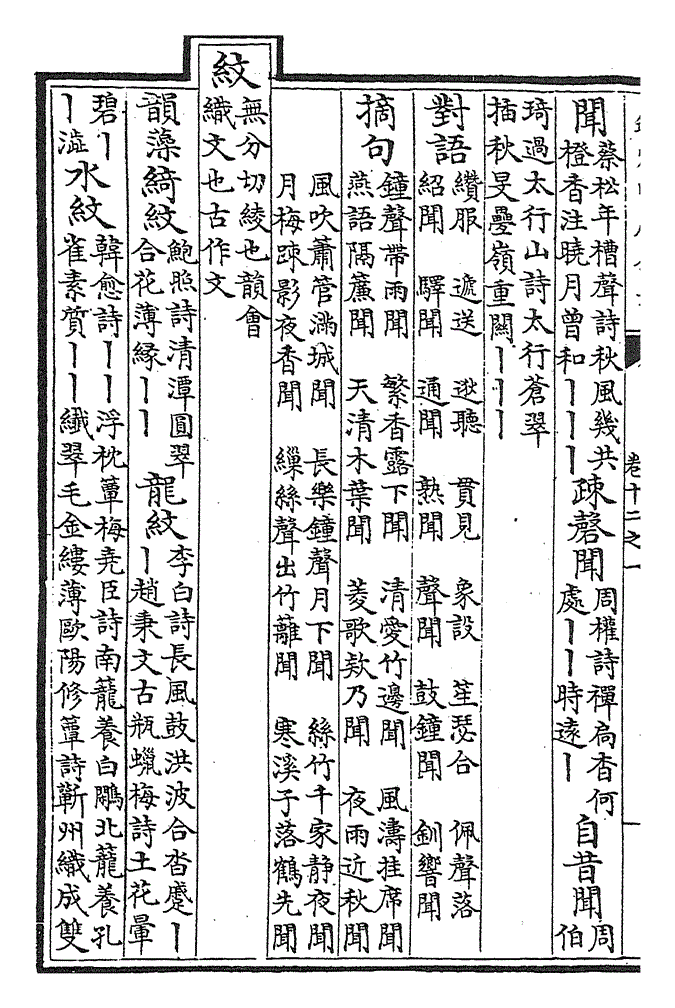 卷十二之一
聞
蔡松年槽聲詩秋風幾共
橙香注曉月曾和丨丨丨
疎磬聞
周權詩禪扃杳何
處丨丨時遠丨
自昔聞
周
伯
琦過太行山詩太行蒼翠
插秋旻疊嶺重關丨丨丨
對語
纘服 遞送 逖聽 貫見 象設 笙瑟合 佩聲落
紹聞 驛聞 通聞 熟聞 聲聞 鼓鐘聞 釧響聞
摘句
鐘聲帶雨聞 繁香露下聞 清愛竹邊聞 風濤挂席聞
燕語隔簾聞 天清木葉聞 菱歌欸乃聞 夜雨近秋聞
風吹簫管滿城聞 長樂鐘聲月下聞 絲竹千家静夜聞
月梅疎影夜香聞 繅絲聲出竹籬聞 寒溪子落鶴先聞
紋
無分切綾也韻會
織文也古作文
韻藻綺紋
鮑照詩清潭圓翠
合花薄緣丨丨
龍紋
李白詩長風鼓洪波合沓蹙丨
丨趙秉文古瓶蠟梅詩土花暈
碧丨
丨澁
水紋
韓愈詩丨丨浮枕簟梅堯臣詩南籠養白鷴北籠養孔
雀素質丨丨纖翠毛金縷薄歐陽修簟詩蘄州織成雙